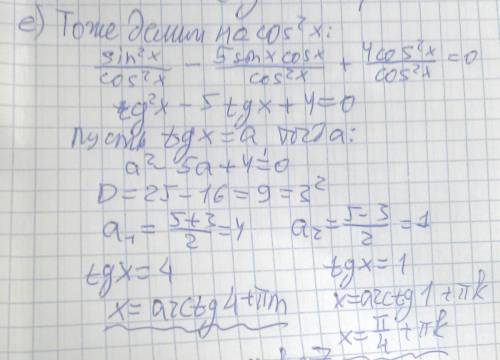 е) Тоже делим на cos²x:
sin²x/cos²x - 5sinx cosx/cos²x + 4cos²x/cos²x = 0
tg²x - 5tgx + 4 = 0
пусть tgx = a тогда:
a² - 5a + 4 = 0
D = 25 - 16 = 9 = 3²
a₁ = (5+3)/2 = 4 a₂ = (5-3)/2 = 1
tgx = 4 tgx = 1
x = arctg4 + πn x = arctg1 + πk
x = π/4 + πk